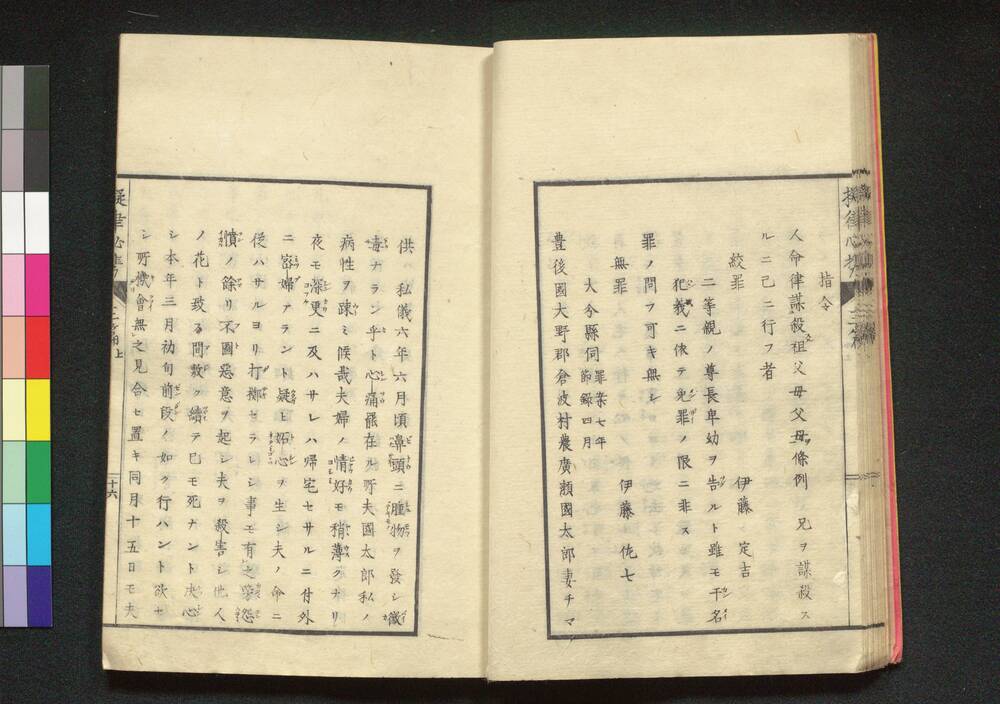 指令
人命律謀殺祖父母父母條例 兄ヲ謀殺ス
ルニ已ニ行フ者
絞罪 伊藤 定吉
二等親ノ尊長卑幼ヲ告ルト雖モ干名
犯義ニ依テ免罪ノ限ニ非ス
罪ノ問フ可キ無シ
無罪 伊藤 佐七
大分縣伺 罪案七年
節録四月
豊後國大野郡倉波村農廣瀬國太郎妻チマ
供 私儀六年六月頃鼻頭ニ腫物ヲ發シ黴
毒ナラン乎ト心痛罷在 所夫國太郎私ノ
病性ヲ疎ミ候哉夫婦ノ情好モ稍薄クナリ
夜モ深更ニ及ハサレハ帰宅セサルニ付外
ニ密婦アラント疑ヒ妬心ヲ生シ夫ノ命ニ
從ハサルヨリ打擲セラレシ事モ有之 怨
憤ノ餘リ不圖惡意ヲ起シ夫ヲ殺害シ他人
ノ花ト致ル間敷ク續テ已モ死ナント决心
シ本年三月初旬前段ノ如ク行ハント欲セ
シ所機會無之見合セ置キ同月十五日モ夫
十六